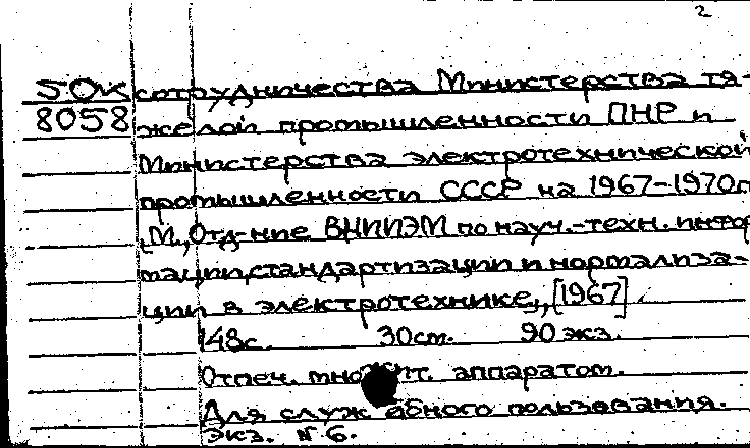 2
50к сотрудничества Министерства тя-
8058 желой промышленности ПНР и
Министерства электротехнической
промышленности СССР на 1967-1970г
[М., Отд-ние ВНИИЭМ по науч.-техн. инфор
мации, стандартизации и нормализа-
ции в электротехнике], [1967].
148с. 30см. 90 экз.
Отпеч. множит. аппаратом.
Для служебного пользования.
Экз. №6.